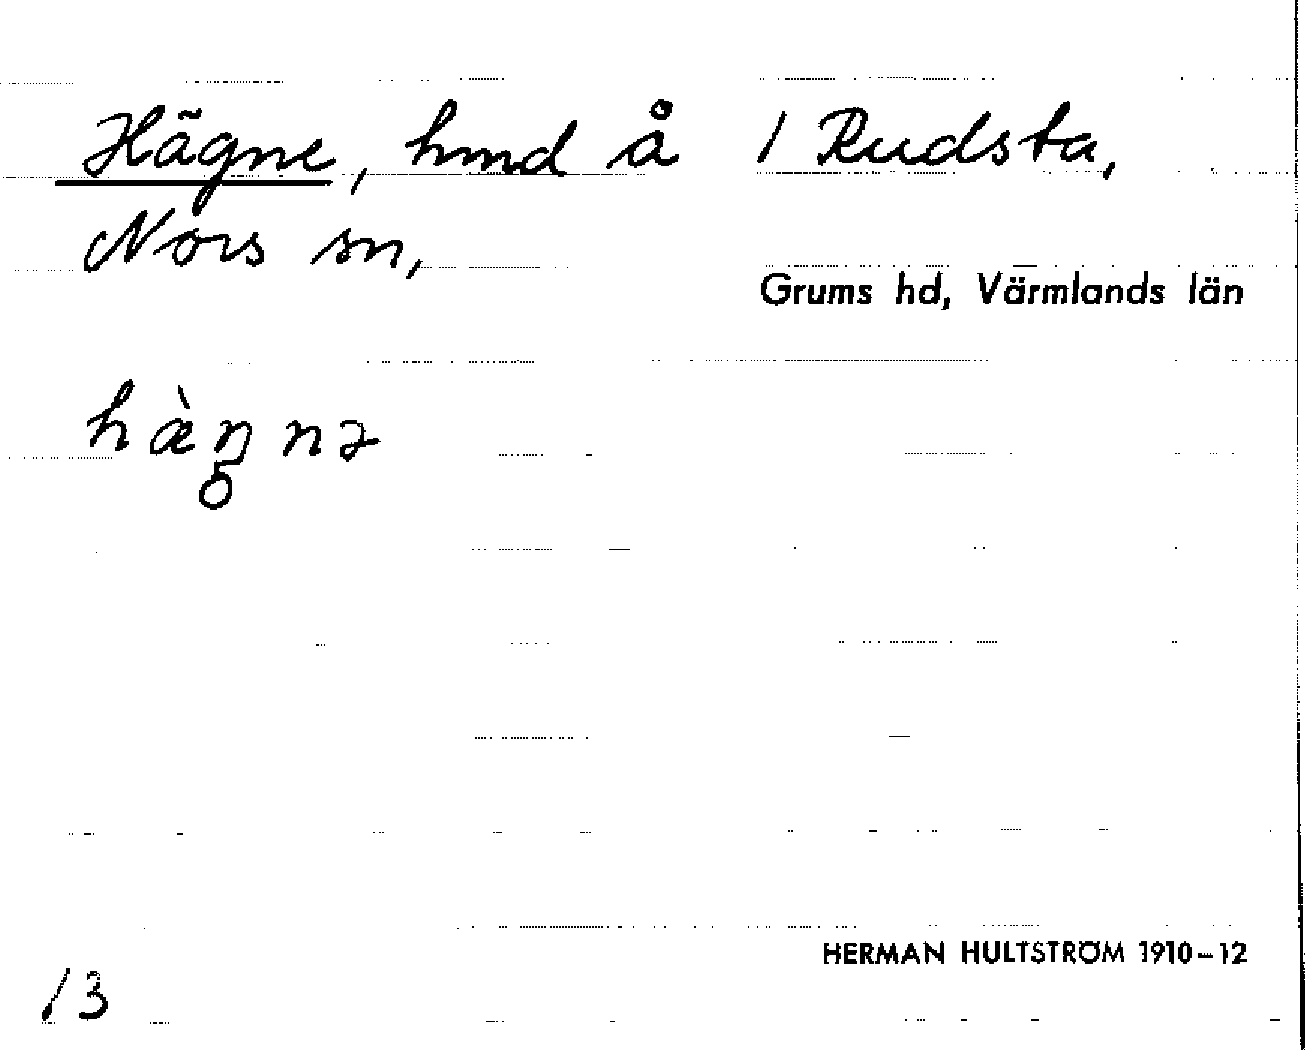 Hägne, hmd å 1 Rudsta,
Nors sn,
Grums hd, Värmlands län
hæ̀ŋnə
HERMAN HULTSTRÖM 1910–12
13